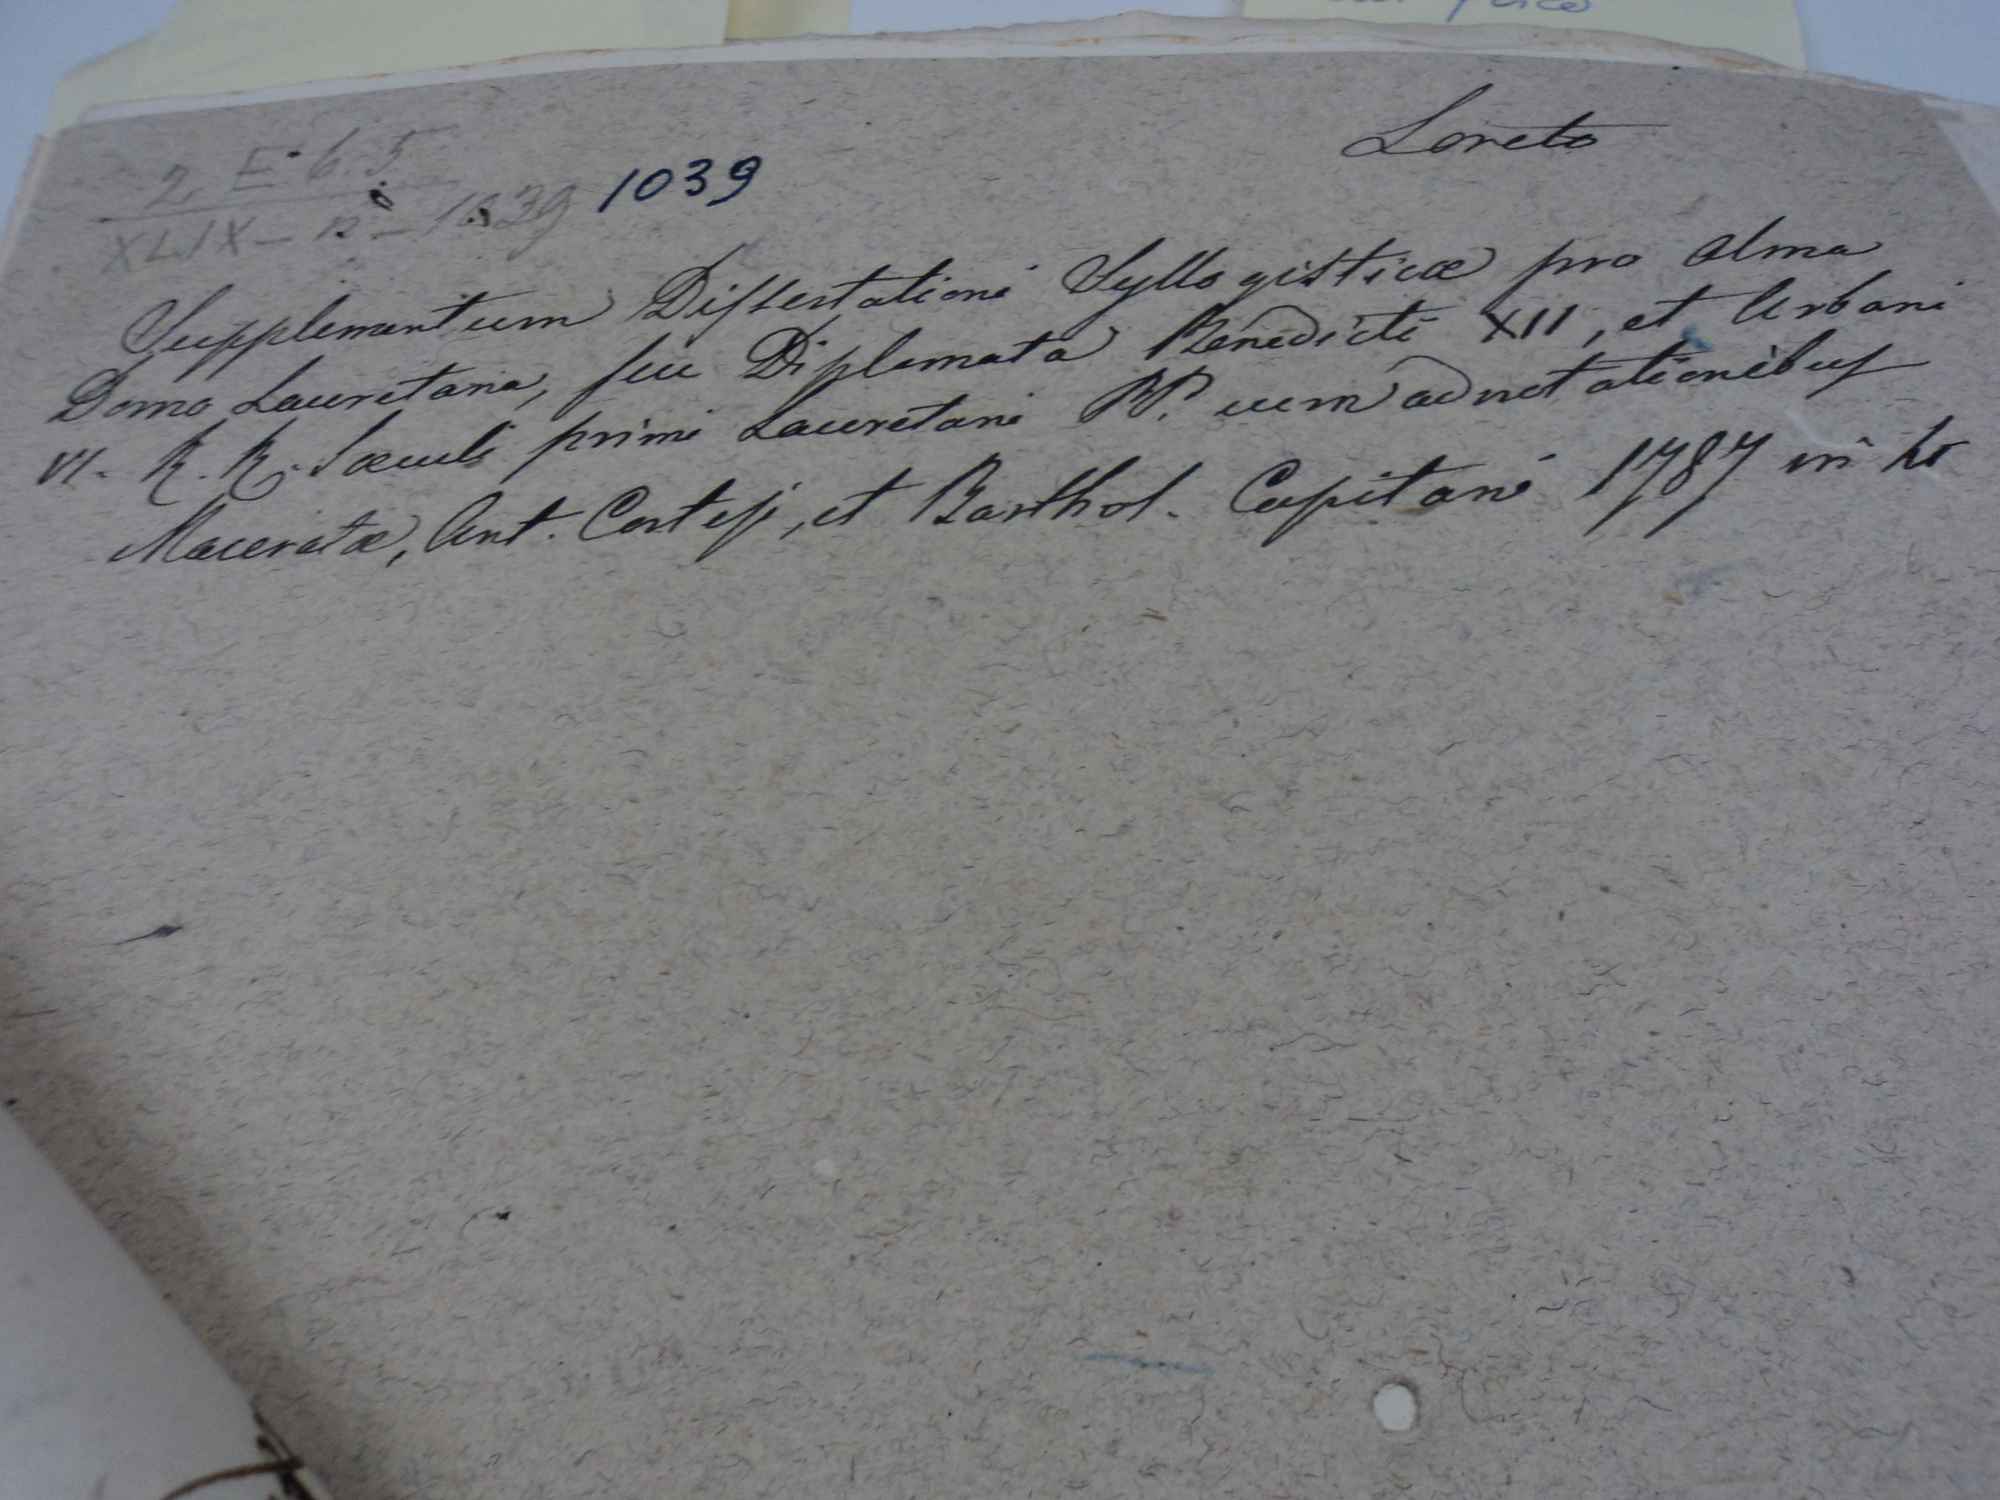 Loreto
2 E 6.5
XLIX - B - 1039 1039
Supplementum Dissertationi Syllogisticæ pro Alma
Domo Lauretana, seu Diplomata Benedicti XII, et Urbani
VI. R. R. Sæculi primi Lauretani PP. cum adnotationibus
Maceratæ, Ant. Cortesj, et Barthol. Capitani 1787 in